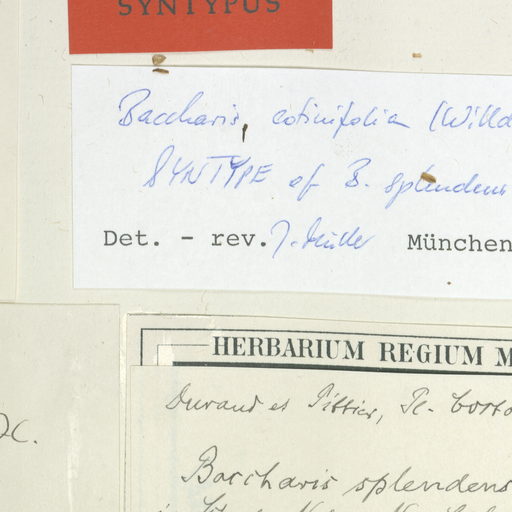 SYNTYPUS
Baccharis cotinifolia (Willd
SYNTYPE of B. splendens
Det. - rev. J. Müller München
HERBARIUM REGIUM M
Durand et Pittier, Pl.
Baccharis splendens